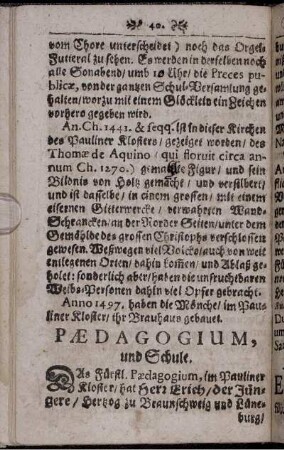 40.
vom Thore unterscheidet) noch das Orgel-
Futteral zu sehen. Es werden in derselben noch
alle Sonabend/ umb 10 Uhr/ die Preces pu-
blicæ, von der gantzen Schul-Versamlung ge-
halten/ worzu mit einem Glöcklein ein Zeichen
vorhero gegeben wird.
An. Ch. 1441. & seqq. ist in dieser Kirchen
des Pauliner Klosters/ gezeiget worden/ des
Thomæ de Aquino/ qui floruit circa an-
num Ch. 1270.) gemahlte Figur/ und sein
Bildnis von Holtz gemacht/ und versilbert/
und ist dasselbe/ in einem grossen/ mit einem
eisernen Gitterwercke/ verwahrten Wand-
Schrancken/ an der Norder Seiten/ unter dem
Gemählde des grossen Christophs verschlossen
gewesen. Weßwegen viel Volcks/ auch von weit
entlegenen Orten/ dahin kom̃en/ und Ablaß ge-
holet: sonderlich aber/ haben die unfruchtbaren
Weibs-Personen dahin viel Opfer gebracht.
Anno 1497. haben die Mönche/ im Pau-
liner Kloster/ ihr Brauhaus gebauet.
PÆDAGOGIUM,
und Schule.
DAs Fürstl. Pædagogium, im Pauliner
Kloster/ hat Herr Erich/ der Jün-
gere/ Hertzog zu Braunschweig und Lüne-
burg/